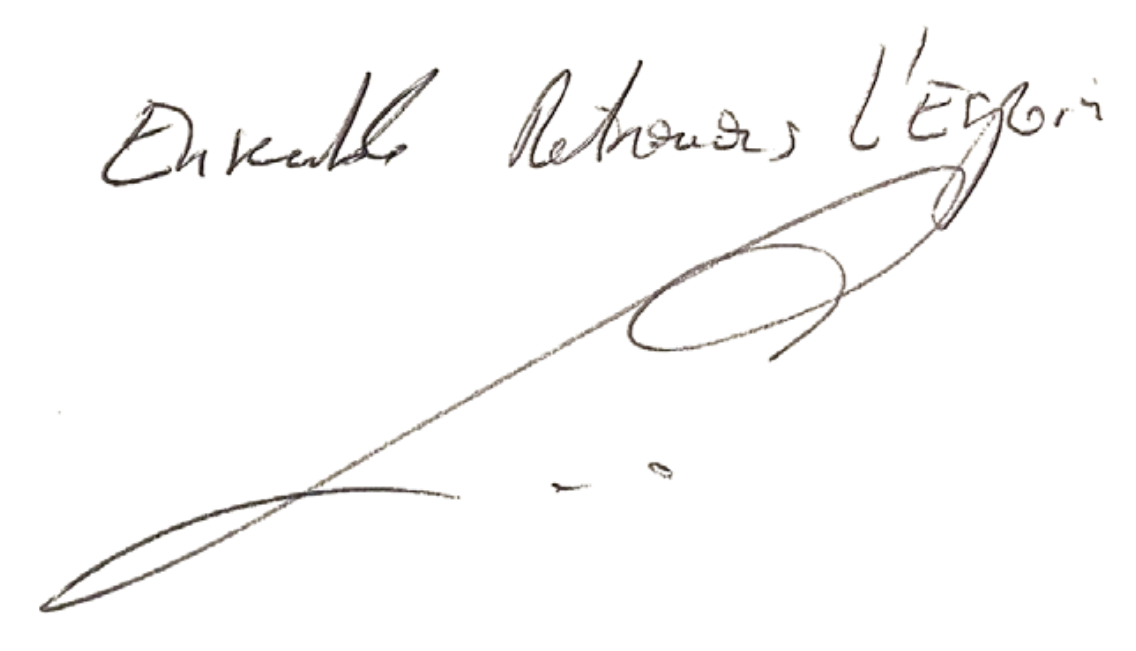 Ensemble Retrouvons L'Espoir